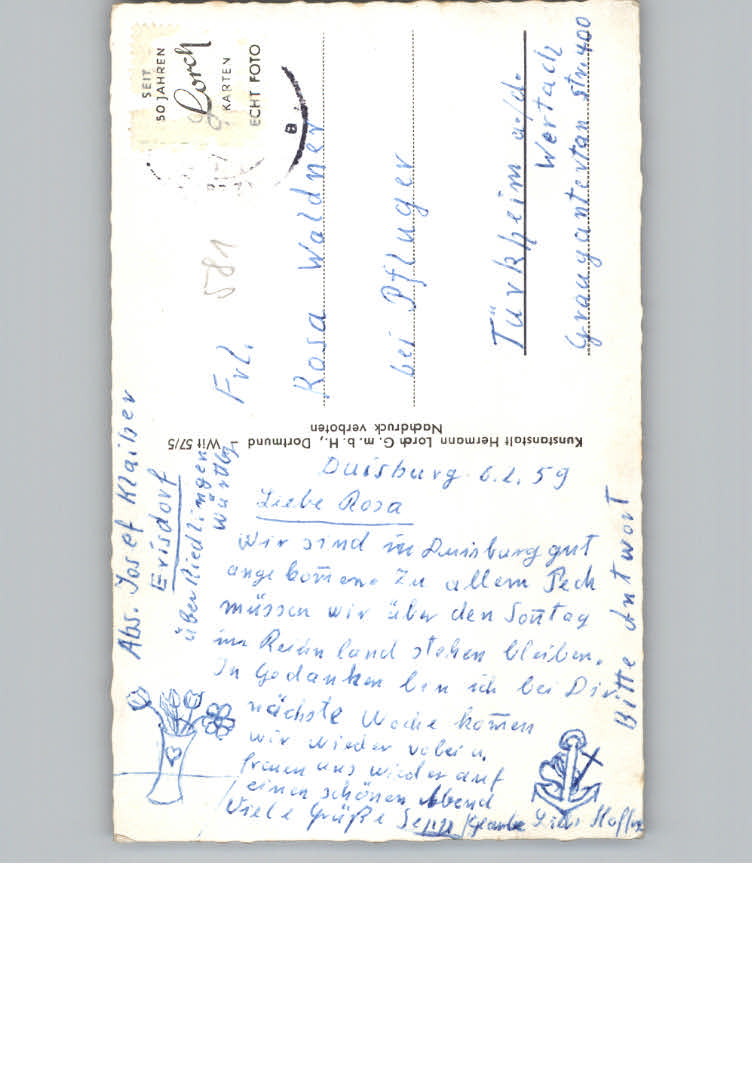 Abs. Josef Klaiber
Erisdorf
über Riedlingen
Württbg
Duisburg 6.2.59
Liebe Rosa
Wir sind in Duisburg gut
angekom̄en. Zu allem Pech
müssen wir über den Son̄tag
im Reihnland stehen bleiben.
In Gedanken bin ich bei Dir
nächste Woche kom̄en
wir wieder vobei u.
freuen uns wieder auf
einen schönen Abend
Viele Grüße Sepp
Bitte Antwort
SEIT
50 JAHREN
Lorch
KARTEN
ECHT FOTO
B
581
Frl.
Rosa Waldner
bei Pfluger
Türkheim a/d.
Wertach
Str. 400
Kunstanstalt Hermann Lorch G. m. b. H., Dortmund - Wit 57/5
Nachdruck verboten